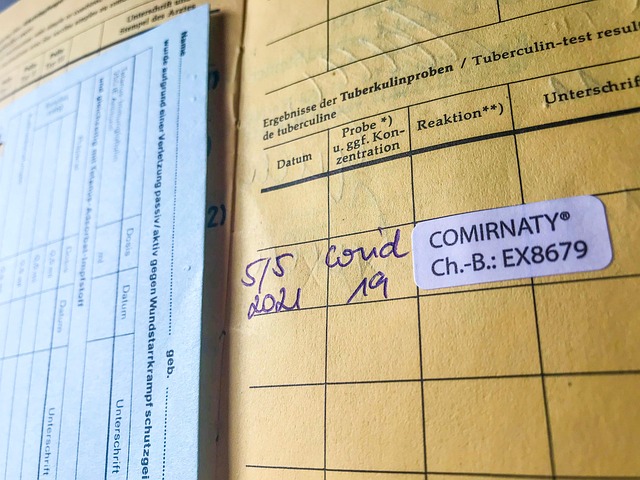 Unterschrift u
Stempel des Arztes
Name
wurde aufgrund einer Verletzung passiv/aktiv gegen Wundstarrkrampf schutzgei
geb.
Dosis
Datum
Unterschrift
Datum
Unterschrift
2)
Ergebnisse der Tuberkulinproben / Tuberculin-test resul
de tuberculine
Datum
Probe *)
u. ggf. Kon-
zentration
Reaktion**)
Unterschrif
5/5
2021
Covid
19
COMIRNATY®
Ch.-B.: EX8679